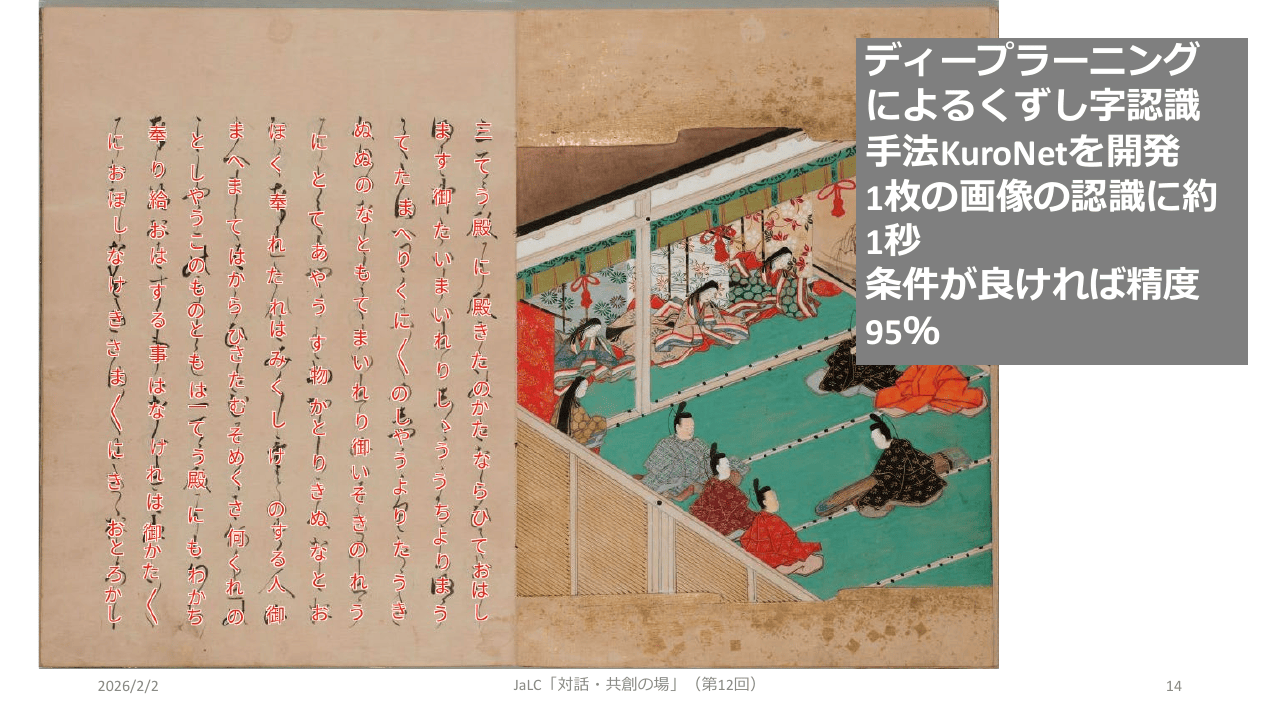 三てう殿に殿きたのかたならひておはし
ます御たいまいれりしゝううちよりまう
てたまへりくに〳〵のしやうよりたうき
ぬぬのなともてまいれり御いそきのれう
にとてあやうす物かとりきぬなとお
ほく奉れたれはみくしけのする人御
まへまてはからひさたむそめくさ何くれの
としやうこのものともは一てう殿にもわかち
奉り給おはする事はなけれは御かたく
におほしなけきさま〳〵にきおとろかし
ディープラーニング
によるくずし字認識
手法KuroNetを開発
1枚の画像の認識に約
1秒
条件が良ければ精度
95%
2026/2/2
JaLC「対話・共創の場」（第12回）
14